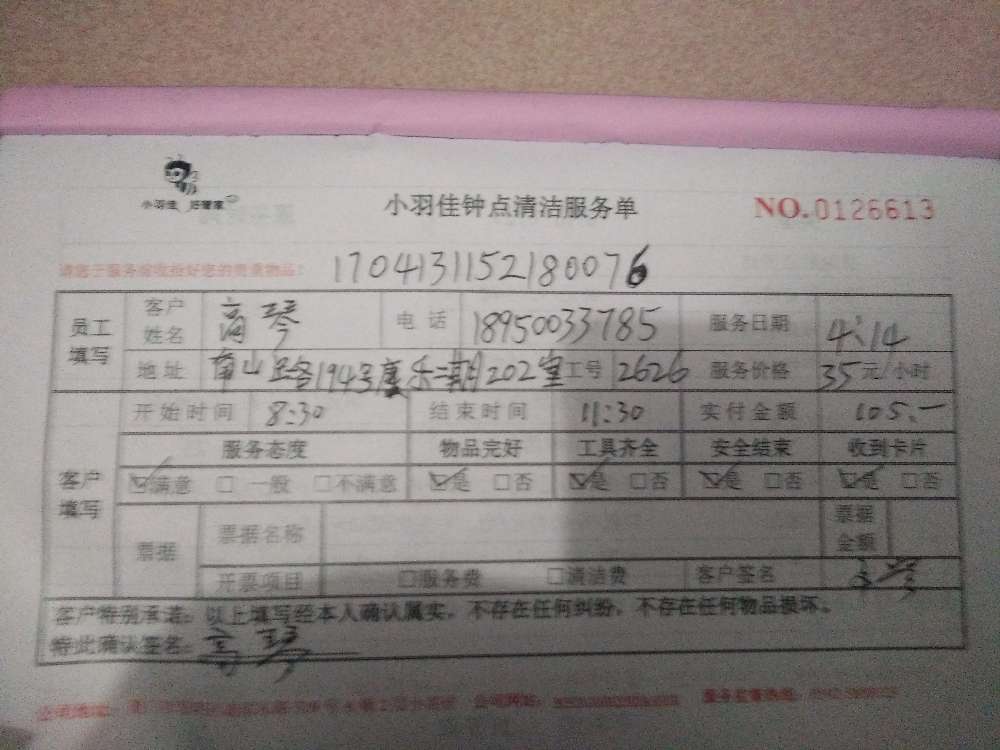 小羽佳 好管家
小羽佳钟点清洁服务单
NO.0126613
请您于服务前收拾好您的贵重物品：
1704131152180076
员工填写
客户姓名 高琴 电话 18950033785 服务日期 4.14
地址 南山路194号康乐二期202室 工号 2626 服务价格 35元/小时
客户填写
开始时间 8:30 结束时间 11:30 实付金额 105.-
服务态度 物品完好 工具齐全 安全结束 收到卡片
☑满意 □一般 □不满意 ☑是 □否 ☑是 □否 ☑是 □否 ☑是 □否
票据 票据名称 票据金额
开票项目 □服务费 □清洁费 客户签名 高琴
客户特别承诺：以上填写经本人确认属实，不存在任何纠纷，不存在任何物品损坏。
特此确认签名：高琴
公司地址： 公司网站： 服务监督热线：